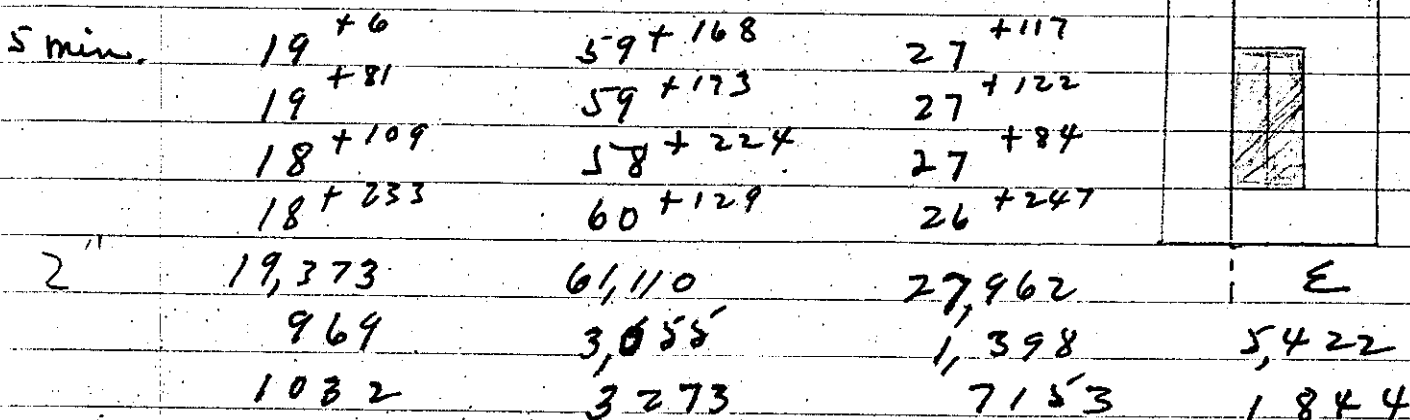 5 min. 19 +6 59 +168 27 +117
19 +81 59 +173 27 +122
18 +109 58 +224 27 +84
18 +233 60 +129 26 +247
2" 19,373 61,110 27,962 Σ
969 3,055 1,398 5,422
1032 3273 7153 1844